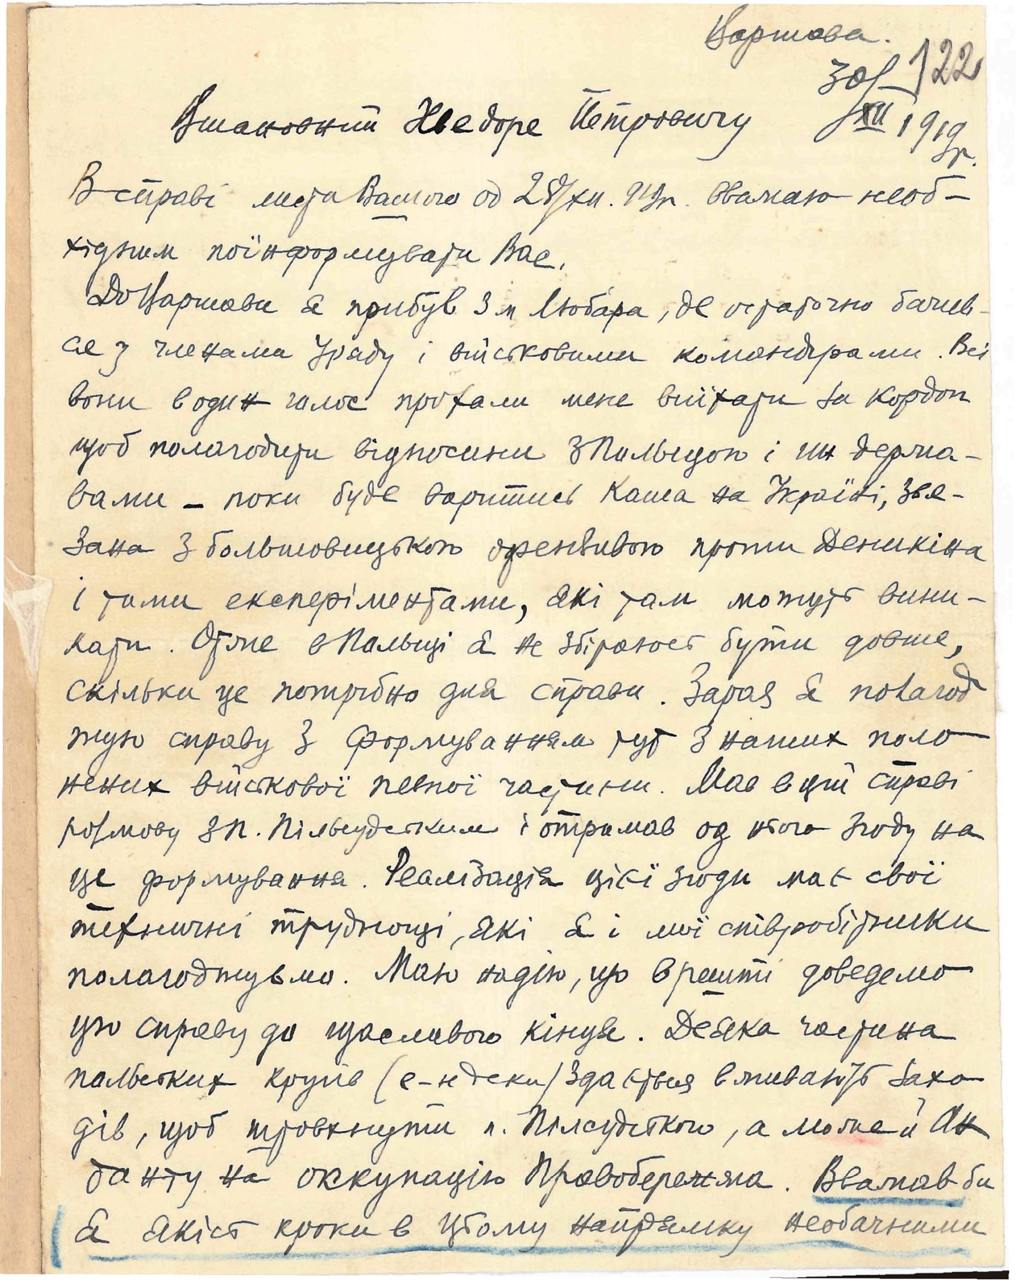 Варшава.
30/XII 1919 р.
122
Вшановний Хведоре Петровичу
В справі листа Вашого од 28/XII. 919 р. вважаю необ-
хідним поінформувати Вас.
До Варшави я прибув з м Любара, де остаточно бачив-
ся з членами Уряду і військовими командірами. Всі
вони в один голос прохали мене виїхати за кордон
щоб полагодити відносини з Польщою і ин держа-
вами – поки буде варитись каша на Україні, звя-
зана з большовицькою офензивою проти Деникіна
і тими експеріментами, які там можуть вини-
кати. Отже в Польщі я не збіраюсь бути довше,
скільки це потрібно для справи. Зараз я полагод
жую справу з формуванням тут з наших поло
нених військової певної частини. Мав в цій справі
розмову з п. Пільсудським і отримав од нього згоду на
це формування. Реалізація цієї згоди має свої
технічні труднощі, які я і мої співробітники
полагоджуємо. Маю надію, що врешті доведемо
цю справу до щасливого кінця. Деяка частина
польських кругів (е-ндеки) здається вживають захо
дів, щоб штовхнути п. Пілсудського, а може й Ан
танту на оккупацію Правобережжа. Вважав би
я якісь кроки в цьому напрямку необачними